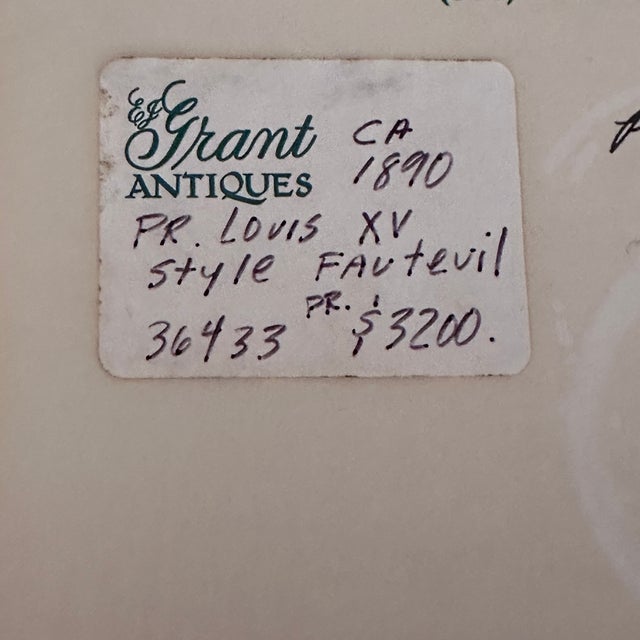 E&J Grant
ANTIQUES
CA
1890
PR. LOUIS XV
style FAUteuil
PR.
36433 $3200.